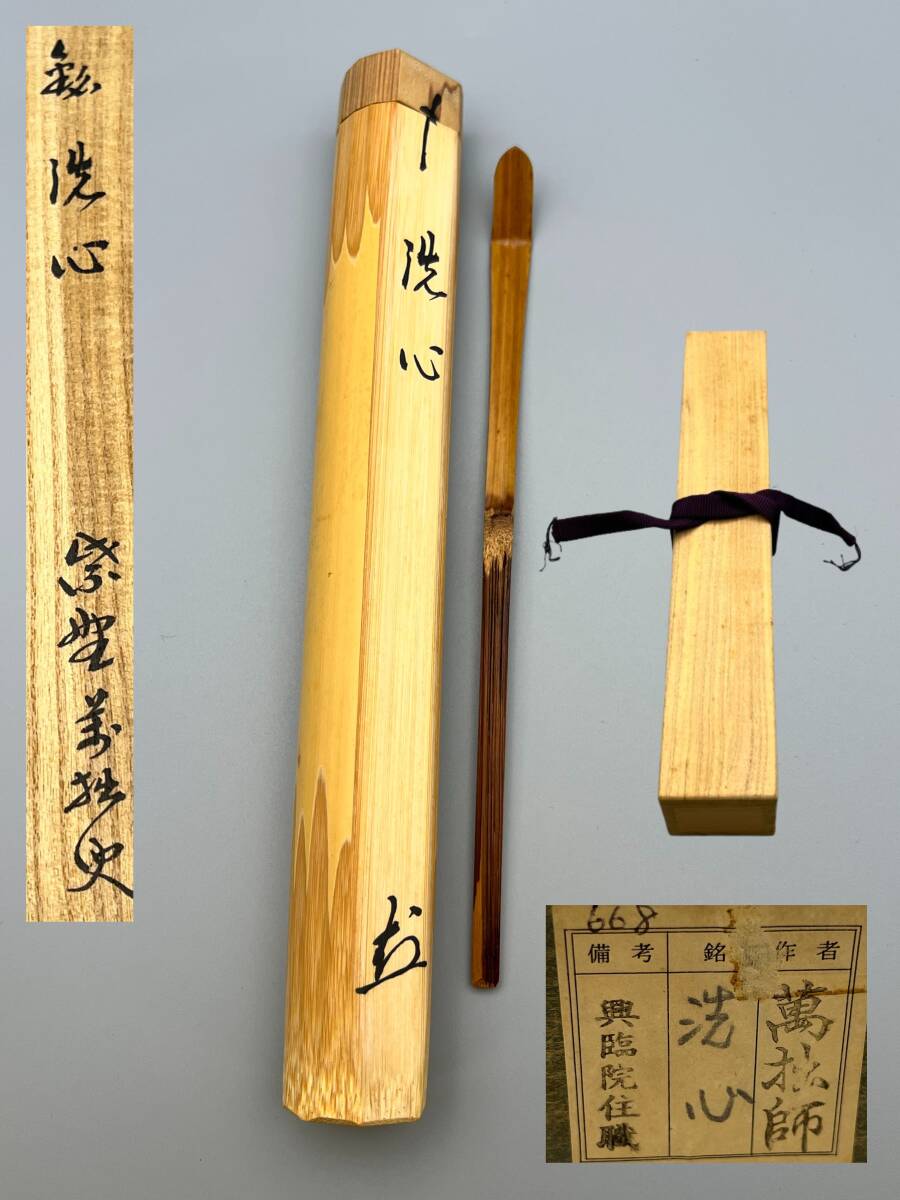 銘 洗心
紫野 萬拙叟
洗心
668
備考 銘 作者
萬拙師
洗心
興臨院住職